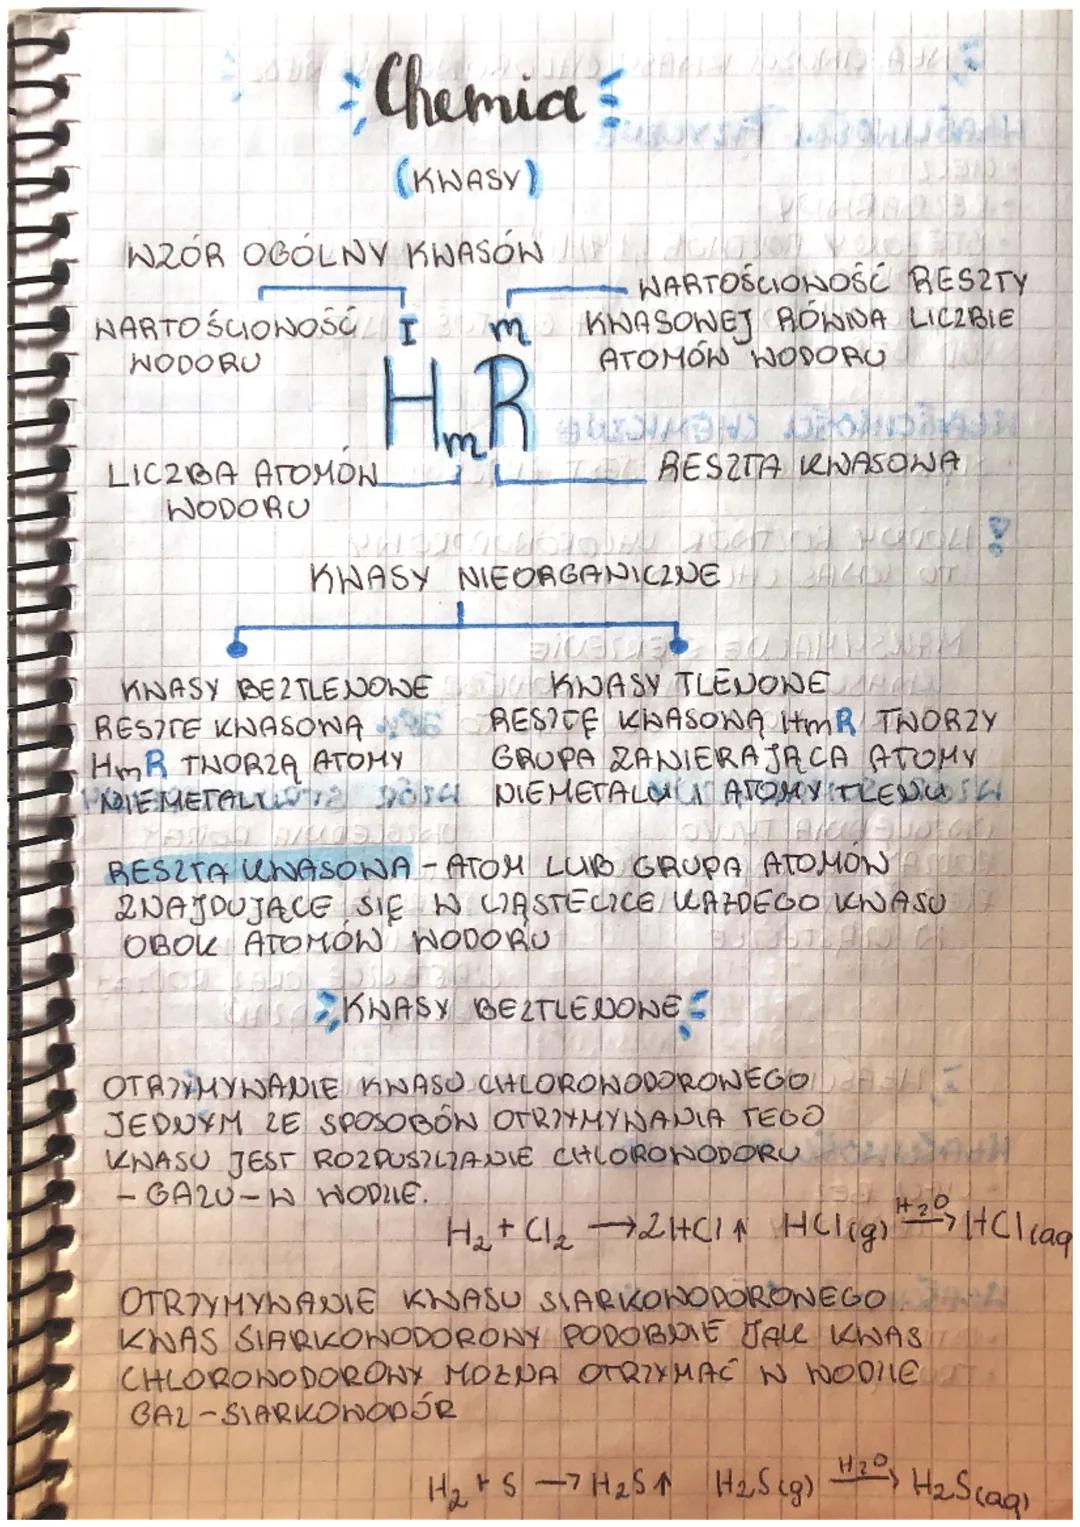 Chemia
(KWASY)
WZÓR OGÓLNY KWASÓW
WARTOŚCIOWOŚĆ
WODORU
I
m
WARTOŚCIOWOŚĆ RESZTY
KWASOWEJ RÓWNA LICZBIE
ATOMÓW WODORU
HmR
LICZBA ATOMÓW
WODORU
RESZTA KWASOWA
KWASY NIEORGANICZNE
KWASY BEZTLENOWE
RESZTE KWASOWĄ
HmR TWORZĄ ATOMY
NIEMETALI
KWASY TLENOWE
RESZTĘ KWASOWĄ HmR TWORZY
GRUPA ZAWIERAJĄCA ATOMY
NIEMETALU I ATOMY TLENU
RESZTA KWASOWA - ATOM LUB GRUPA ATOMÓW
ZNAJDUJĄCE SIĘ W CZĄSTECZCE KAŻDEGO KWASU
OBOK ATOMÓW WODORU
KWASY BEZTLENOWE
OTRZYMYWANIE KWASU CHLOROWODOROWEGO
JEDNYM ZE SPOSOBÓW OTRZYMYWANIA TEGO
KWASU JEST ROZPUSZCZANIE CHLOROWODORU
- GAZU - W WODZIE.
H₂ + Cl₂ → 2HCl ↑ HCl(g) H₂O→ HCl(aq
OTRZYMYWANIE KWASU SIARKOWODOROWEGO
KWAS SIARKOWODOROWY PODOBNIE JAK KWAS
CHLOROWODOROWY MOŻNA OTRZYMAĆ W WODZIE
GAZ - SIARKOWODÓR
H₂ + S → H₂S ↑ H₂S(g) H₂O→ H₂S(aq)